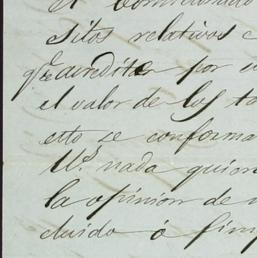 El comisionado
sitos relativos
que acrediten por
el valor de los
esto se conforma
Vd. nada
la opinion de
cluido ó